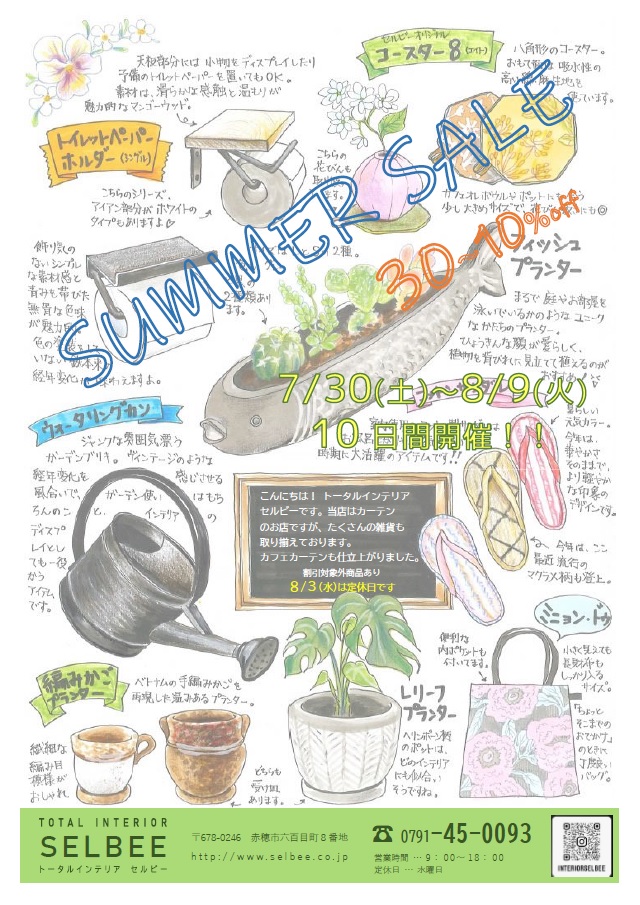 天板部分には 小物をディスプレイしたり
予備のトイレットペーパーを置いてもOK。
素材は、滑らかな感触と温もりが
魅力的なマンゴーウッド。
セルビーオリジナル
コースター8(エイト)
八角形のコースター。
トイレットペーパー
ホルダー(シングル)
こちらのシリーズ、
アイアン部分が ホワイトの
タイプもありますよ
こちらの
SUMMER SALE
30-10%off
飾り気の
ないシンプル
な素材感と
青みを帯びた
無質な色味
が魅力
フィッシュ
プランター
まるで 庭やお部屋を
泳いでいるかのような ユニーク
なかたちのプランター。
ひょうきんな顔が愛らしく、
植物を背びれに見立てて植えるのが
おすすめ
7/30(土)～8/9(火)
10日間開催！！
時期に大活躍のアイテムです!!
ウォータリングカン
ジャンクな雰囲気漂う
ガーデンブリキ。ヴィンテージのような
経年変化を 感じさせる
風合いで、 ガーデン使い はもち
ろんのこ と、 インテリア の
ディスプ
レイとし
ても一役
かう
アイテム
です。
こんにちは！ トータルインテリア
セルビーです。当店はカーテン
のお店ですが、たくさんの雑貨も
取り揃えております。
カフェカーテンも仕立上がりました。
割引対象外商品あり
8/3(水)は定休日です
元気カラー。
今年は、
華やかさ
そのままで、
より軽やか
な印象の
デザインです。
今年は、ここ
最近 流行の
マクラメ柄も登場。
ミニョン・ドゥ
便利な
内ポケットも
ついてます。
小さく見えても
長財布も
しっかり入る
サイズ。
「ちょっと
そこまでの
おでかけ」
のときに
丁度良い
バッグ。
編みかご
プランター
ベトナムの手編みかごを
再現した温みあるプランター。
繊細な
編み目
模様が
おしゃれ
どちらも
受け皿
あります。
レリーフ
プランター
ヘリンボーン柄
のポットは、
どのインテリア
にも似合い
そうですね。
TOTAL INTERIOR
SELBEE
トータルインテリア セルビー
〒678-0246 赤穂市六百目町８番地
http://www.selbee.co.jp
☎ 0791-45-0093
営業時間 … 9：00～18：00
定休日 … 水曜日
INTERIORSELBEE